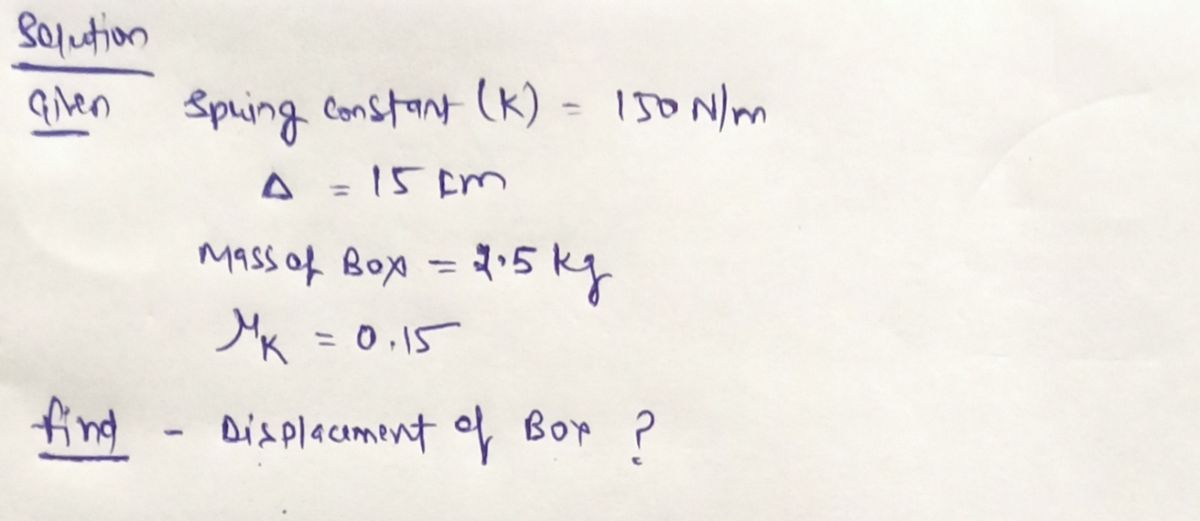 Solution
Given Spring constant (K) = 150 N/m
Δ = 15 cm
Mass of Box = 2.5 kg
μK = 0.15
find - Displacement of Box ?